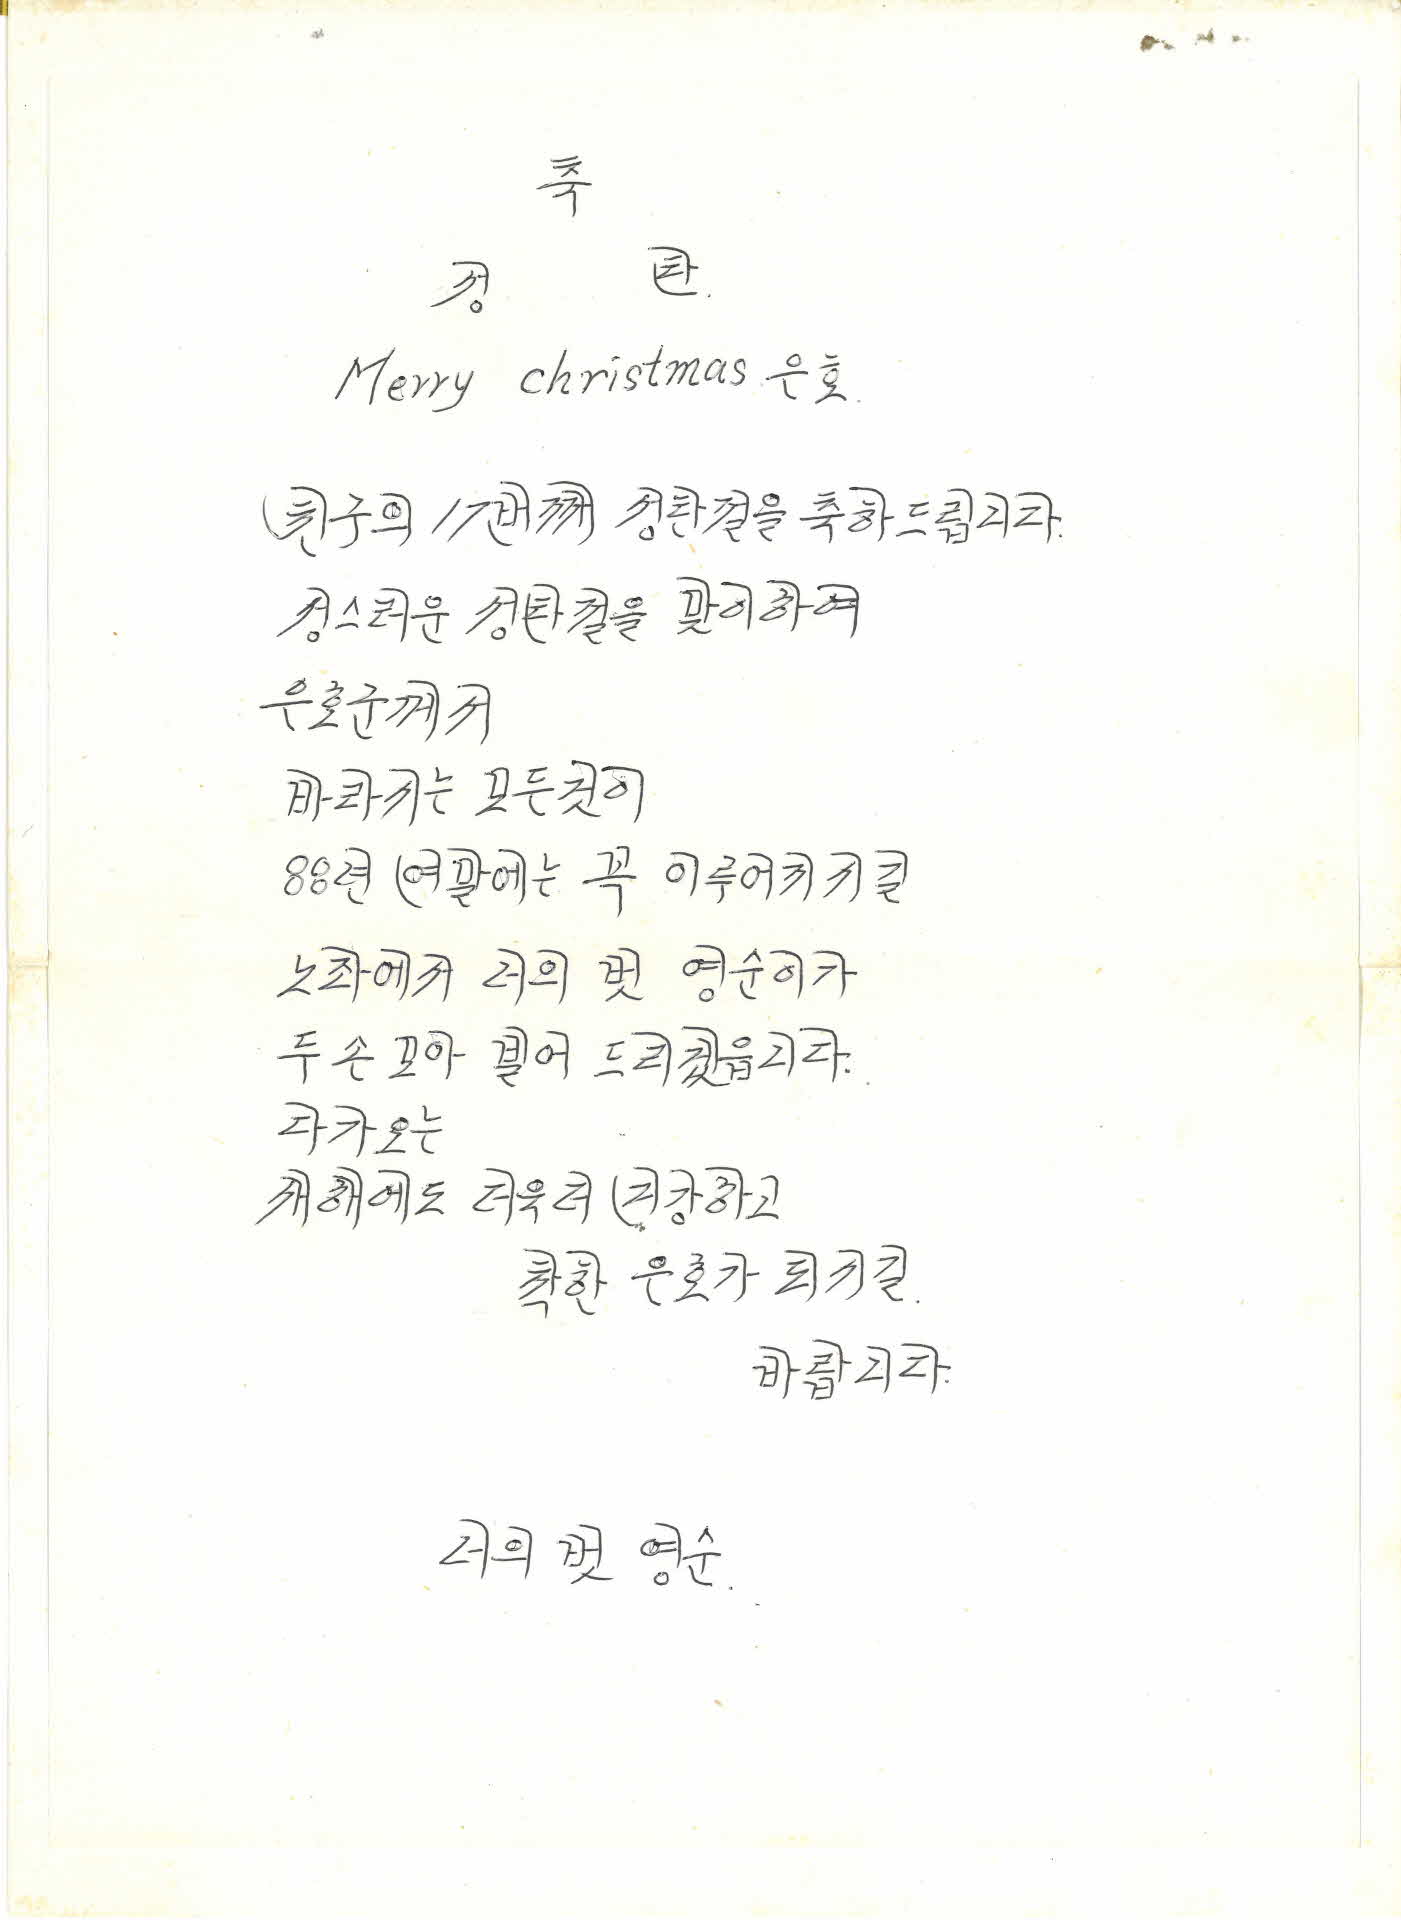 축
성 탄.
Merry christmas 은호.
친구의 17번째 성탄절을 축하드립니다.
성스러운 성탄절을 맞이하여
은호군께서
바라시는 모든것이
88년 연말에는 꼭 이루어지시길
노좌에서 너의 벗 영순이가
두 손 모아 빌어 드리겠읍니다.
다가오는
새해에도 더욱더 건강하고
착한 은호가 되시길.
바랍니다.
너의 벗 영순.